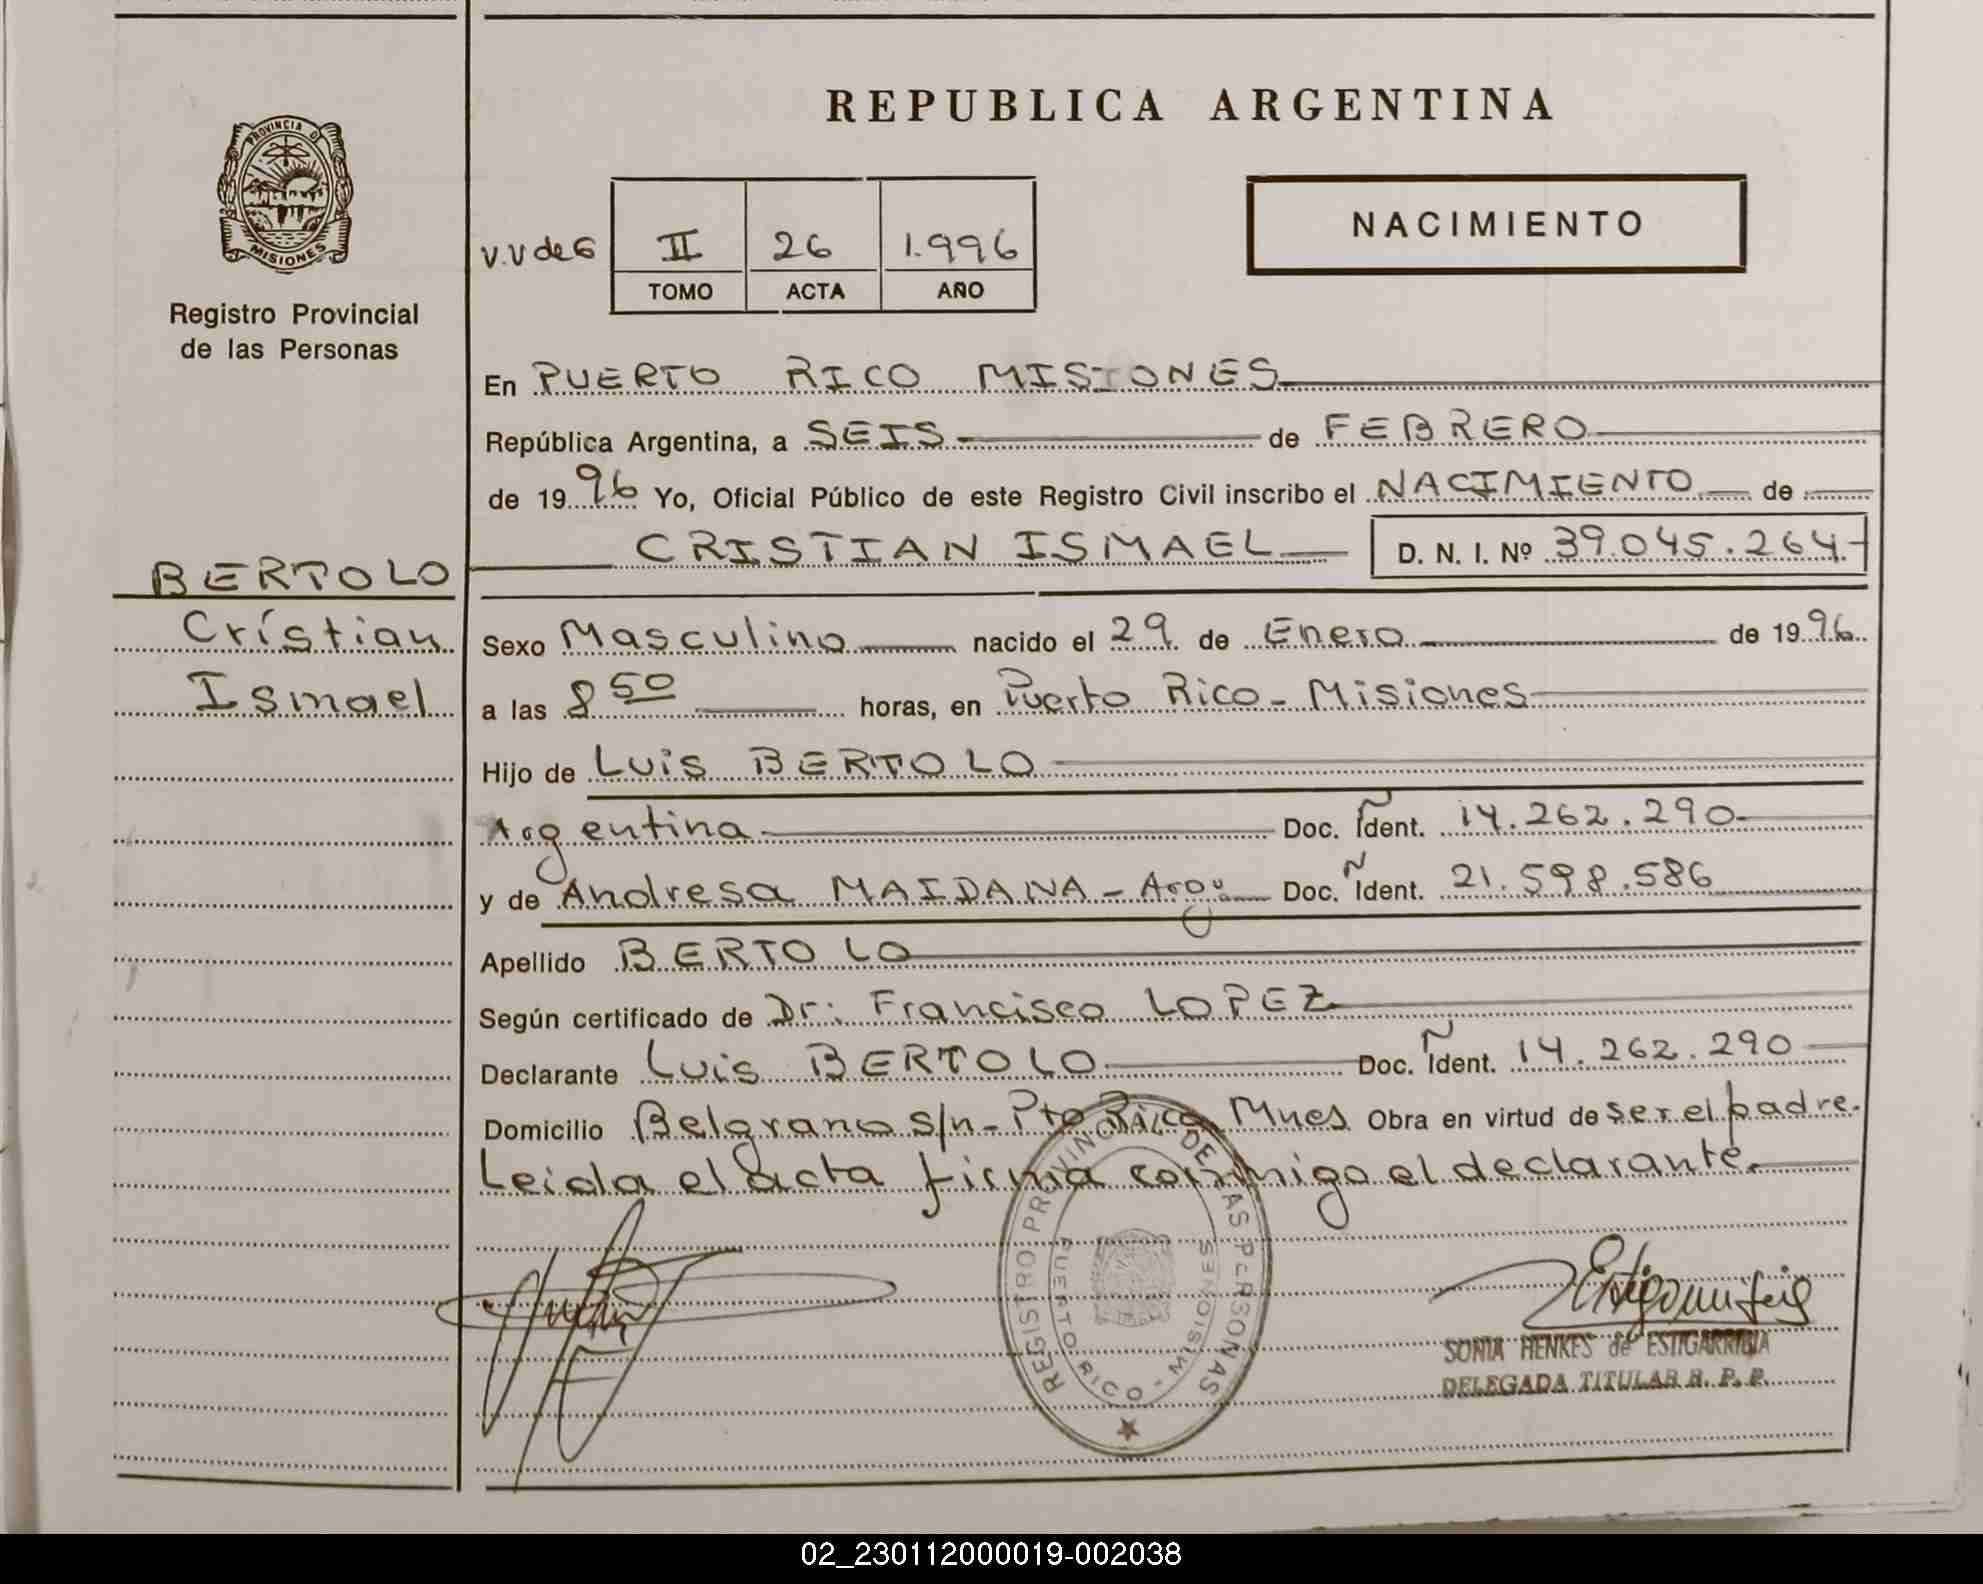 REPUBLICA ARGENTINA
PROVINCIA D
MISIONES
Registro Provincial
de las Personas
NACIMIENTO
V.V de 6 II 26 1.996
TOMO ACTA AÑO
En PUERTO RICO MISIONES
República Argentina, a SEIS de FEBRERO
de 1996 Yo, Oficial Público de este Registro Civil inscribo el NACIMIENTO de
CRISTIAN ISMAEL D. N. I. Nº 39.045.264
BERTOLO
Cristian
Ismael
Sexo Masculino nacido el 29 de Enero de 1996
a las 8 50 horas, en Puerto Rico - Misiones
Hijo de Luis BERTOLO
Argentina Doc. Ident. 14.262.290
y de Andresa MAIDANA - Arg. Doc. Ident. 21.598.586
Apellido BERTOLO
Según certificado de Dr: Francisco LOPEZ
Declarante Luis BERTOLO Doc. Ident. 14.262.290
Domicilio Belgrano s/n - Pto Rico Mnes Obra en virtud de ser el padre.
Leida el acta firma conmigo el declarante.
REGISTRO PROVINCIAL DE LAS PERSONAS
PUERTO RICO - MISIONES
SONIA HENKES de ESTIGARRIBIA
DELEGADA TITULAR R. P. P.
02_230112000019-002038